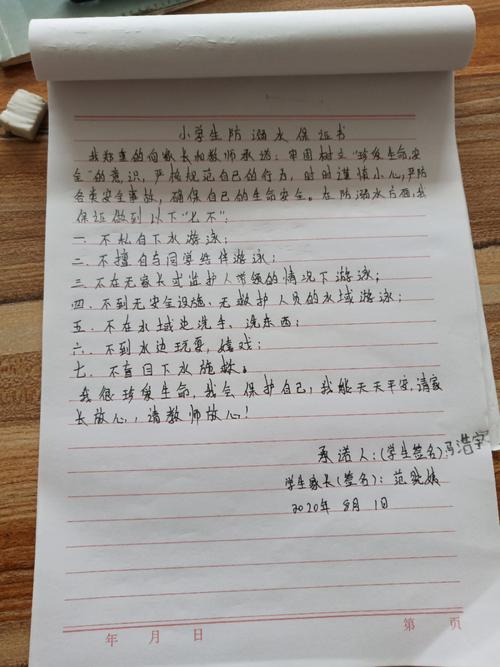 小学生防溺水保证书
我郑重的向家长和教师承诺：牢固树立"珍爱生命,安
全"的意识，严格规范自己的行为，时时谨慎小心,严防
各类安全事故，确保自己的生命安全。在防溺水方面,我
保证做到以下"七不"：
一.不私自下水游泳；
二.不擅自与同学结伴游泳；
三.不在无家长或监护人带领的情况下游泳；
四.不到无安全设施、无救护人员的水域游泳；
五.不在水域边洗手、洗东西；
六.不到水边玩耍，嬉戏；
七.不盲目下水施救。
我很珍爱生命，我会保护自己，我能天天平安,请家
长放心，请教师放心！
承诺人：(学生签名)冯浩宇
学生家长(签名)：范
2020年 8月 1日
年 月 日
第 页